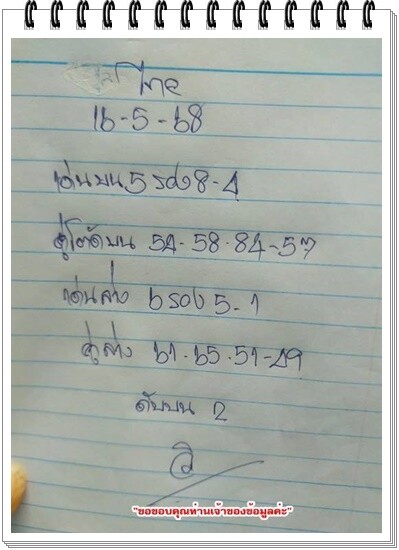 ไทย
16-5-68
เด่นบน 5 รอง 8-4
คู่โต๊ดบน 54-58-84-57
เด่นล่าง 6 รอง 5-1
คู่ล่าง 61-65-51-49
ดับบน 2
"ขอขอบคุณท่านเจ้าของข้อมูลค่ะ"